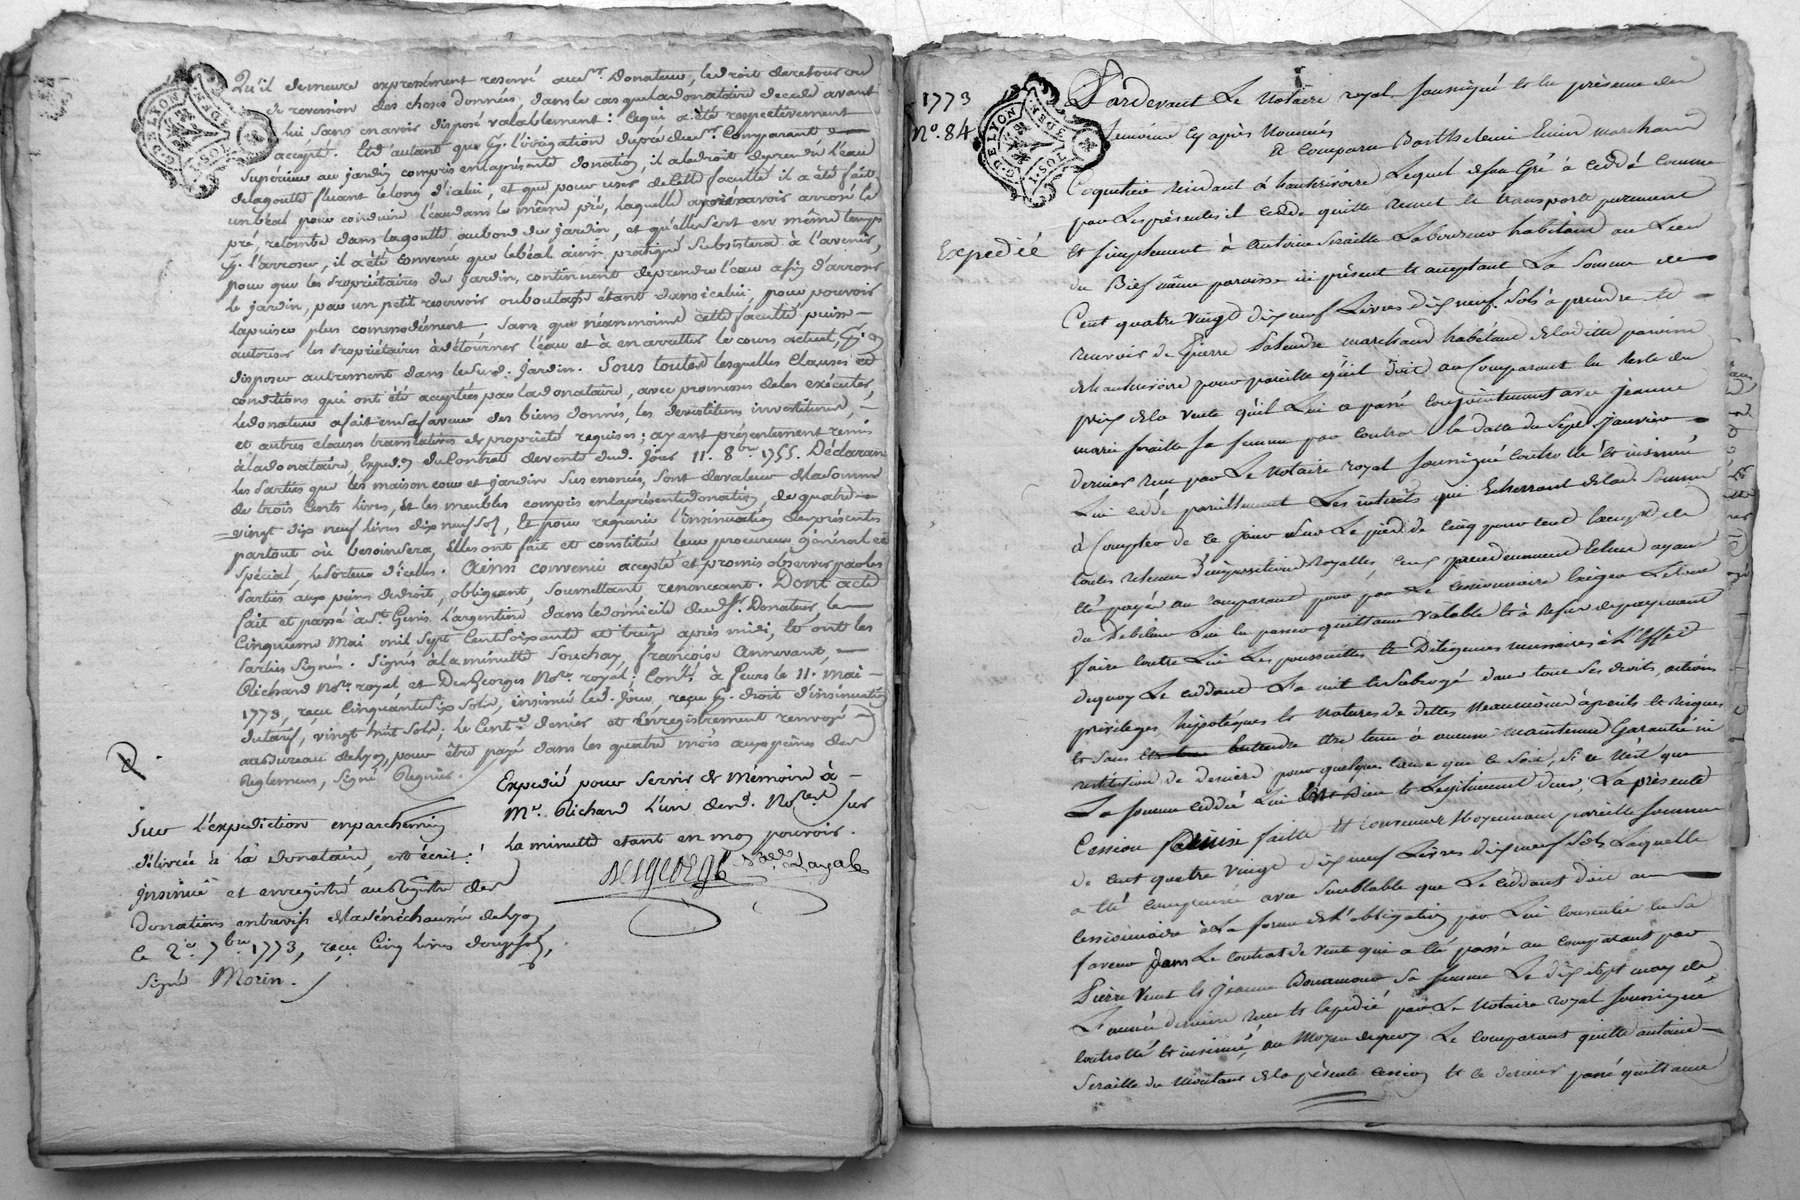 Qu'il demeure expressément reservé au Sr. Donateur, le droit de retour ou
de reversion des choses données, dans le cas que la donataire decede avant
lui sans en avoir disposé valablement : ce qui a été respectivement
accepté. Et d'autant que p. l'irrigation du pré dud. Sr. Comparant
Supérieur au jardin compris en la présente donation, il a le droit de prendre l'eau
de la goutte fluant le long d'icelui, et que pour user de cette faculté il a été fait
un béal pour conduire l'eau dans le même pré, laquelle après avoir arrosé le
pré, retombe dans la goutte au bord du jardin, et qu'elle sert en même temps
p. l'arroser, il a été convenu que le béal ainsi pratiqué subsistera à l'avenir,
pour que les propriétaires du jardin, continuent de prendre l'eau afin d'arroser
le jardin, par un petit reservoir ou boutasse étant dans icelui, pour pouvoir
la puiser plus commodément, sans que néanmoins cette faculté puisse
autoriser les propriétaires à détourner l'eau et à en arretter le cours actuel, p. en
disposer autrement dans le susd. jardin. Sous toutes lesquelles clauses et
conditions qui ont été acceptées par la donataire, avec promesses de les exécuter,
le donateur a fait en sa faveur des biens donnés, les devestitures investitures,
et autres clauses translatives de propriété requises ; ayant présentement remis
à la donataire, Exped.on du Contrat de vente dud. jour 11. 8bre 1755. Déclarant
les Parties que les maison cour et jardin sus énoncés, sont de valeur de la somme
de trois Cents livres, et les meubles compris en la présente donation de quatre
vingt dix neuf livres dix neuf sols, Et pour requerir l'insinuation des présentes
partout où besoin sera, Elles ont fait et constitué leur procureur général et
spécial, le porteur d'icelles. Ainsi convenu accepté et promis observer par les
Parties aux peines de droit, obligeant, soumettant renonceant. Dont acte
fait et passé à St. Genis L'argentiere dans le domicile dud. Sr. Donateur, le
Cinquieme Mai mil sept Cent soixante et treize après midi, Et ont les
Parties Signés. Signés à la minutte Souchay, françoise Annevant,
Richard Nore. royal et DesGeorges Nore. royal ; Conlé. à feurs le 11. mai
1773, reçu Cinquante six Sols, insinué led. Jour, reçu p. droit d'insinuation
du tarif, vingt huit Sols ; le Cent.e denier et L'enregistrement renvoyé
au bureau de Lyon, pour être payé dans les quatre mois aux peines des
Reglemens, signé Regnier.
Expedié pour servir de Mémoire à
Me. Richard L'un desd. Nores. sur
la minutte etant en mon pouvoir.
DesGeorges
Sur L'expediction en parchemin
délivrée à la donataire, est écrit :
Insinué et enregistré au Registre des
Donations entrevifs de la sénéchaussée de Lyon
le 2e. 7bre 1773, reçu Cinq livres douze sols,
Signé Morin.
1773
No. 84
G. DE LYON
Expedié
Pardevant Le Notaire royal soussigné et en présence des
temoins cy après Nommés
A Comparu Barthelemi marchand
Coquetier résidant à hauterivoire Lequel de son Gré à ceddé comme
par Les présentes il cedde quitte remet et transporte purement
et simplement à Antoine Seraille Laboureur habitant au Lieu
du Bief même paroisse ici présent et acceptant La Somme de
Cent quatre vingt dix neuf Livres dix neuf Sols à prendre et
recevoir de Pierre marchand habitant de ladite paroisse
de hauterivoire pour pareille qu'il doit au Comparant en reste du
prix de la vente qu'il Lui a passé conjointement avec Jeanne
marie seraille sa femme par contrat en datte du sept Janvier
dernier reçu par Le Notaire royal soussigné controllé et insinué
Lui cedde pareillement Les interets qui Echerront de lad. Somme
à Compter de ce jour sur Le pied de cinq pour cent Exempt de
toutes retenue d'impositions Royalles, ceux precedemment Echus ayant
été payés au comparant pour par Le cessionnaire Exiger Le tout
du Debiteur Lui en passer quittance valable et à Refus de payement
faire contre Lui Les poursuittes et Diligences necessaires à L'Effet
dequoy Le ceddant L'a mit et subrogé dans tous ses droits, actions
privileges hipotéques et Natures de dettes Neanmoins à périls et risques
et sans entendre être tenu à aucune maintenue Garantie ni
restitution de deniers pour quelque cause que ce soit, si ce N'est que
La somme ceddée Lui est Due et Légitimement due, La présente
Cession faitte et consentie Moyennant pareille somme
de cent quatre vingt dix neuf Livres dix neuf Sols Laquelle
a été compensée avec semblable que Le ceddant doit au
cessionnaire à la forme de L'obligation par Lui consentie en sa
faveur dans Le contrat de vente qui a été passé au comparant par
Pierre et Jeanne sa femme Le dix sept may de
L'année derniere reçu et Expedié par Le Notaire royal soussigné
controllé et insinué, au Moyen dequoy Le comparant quitte antoine
Seraille du Montant de la présente cession et ce dernier passe quittance